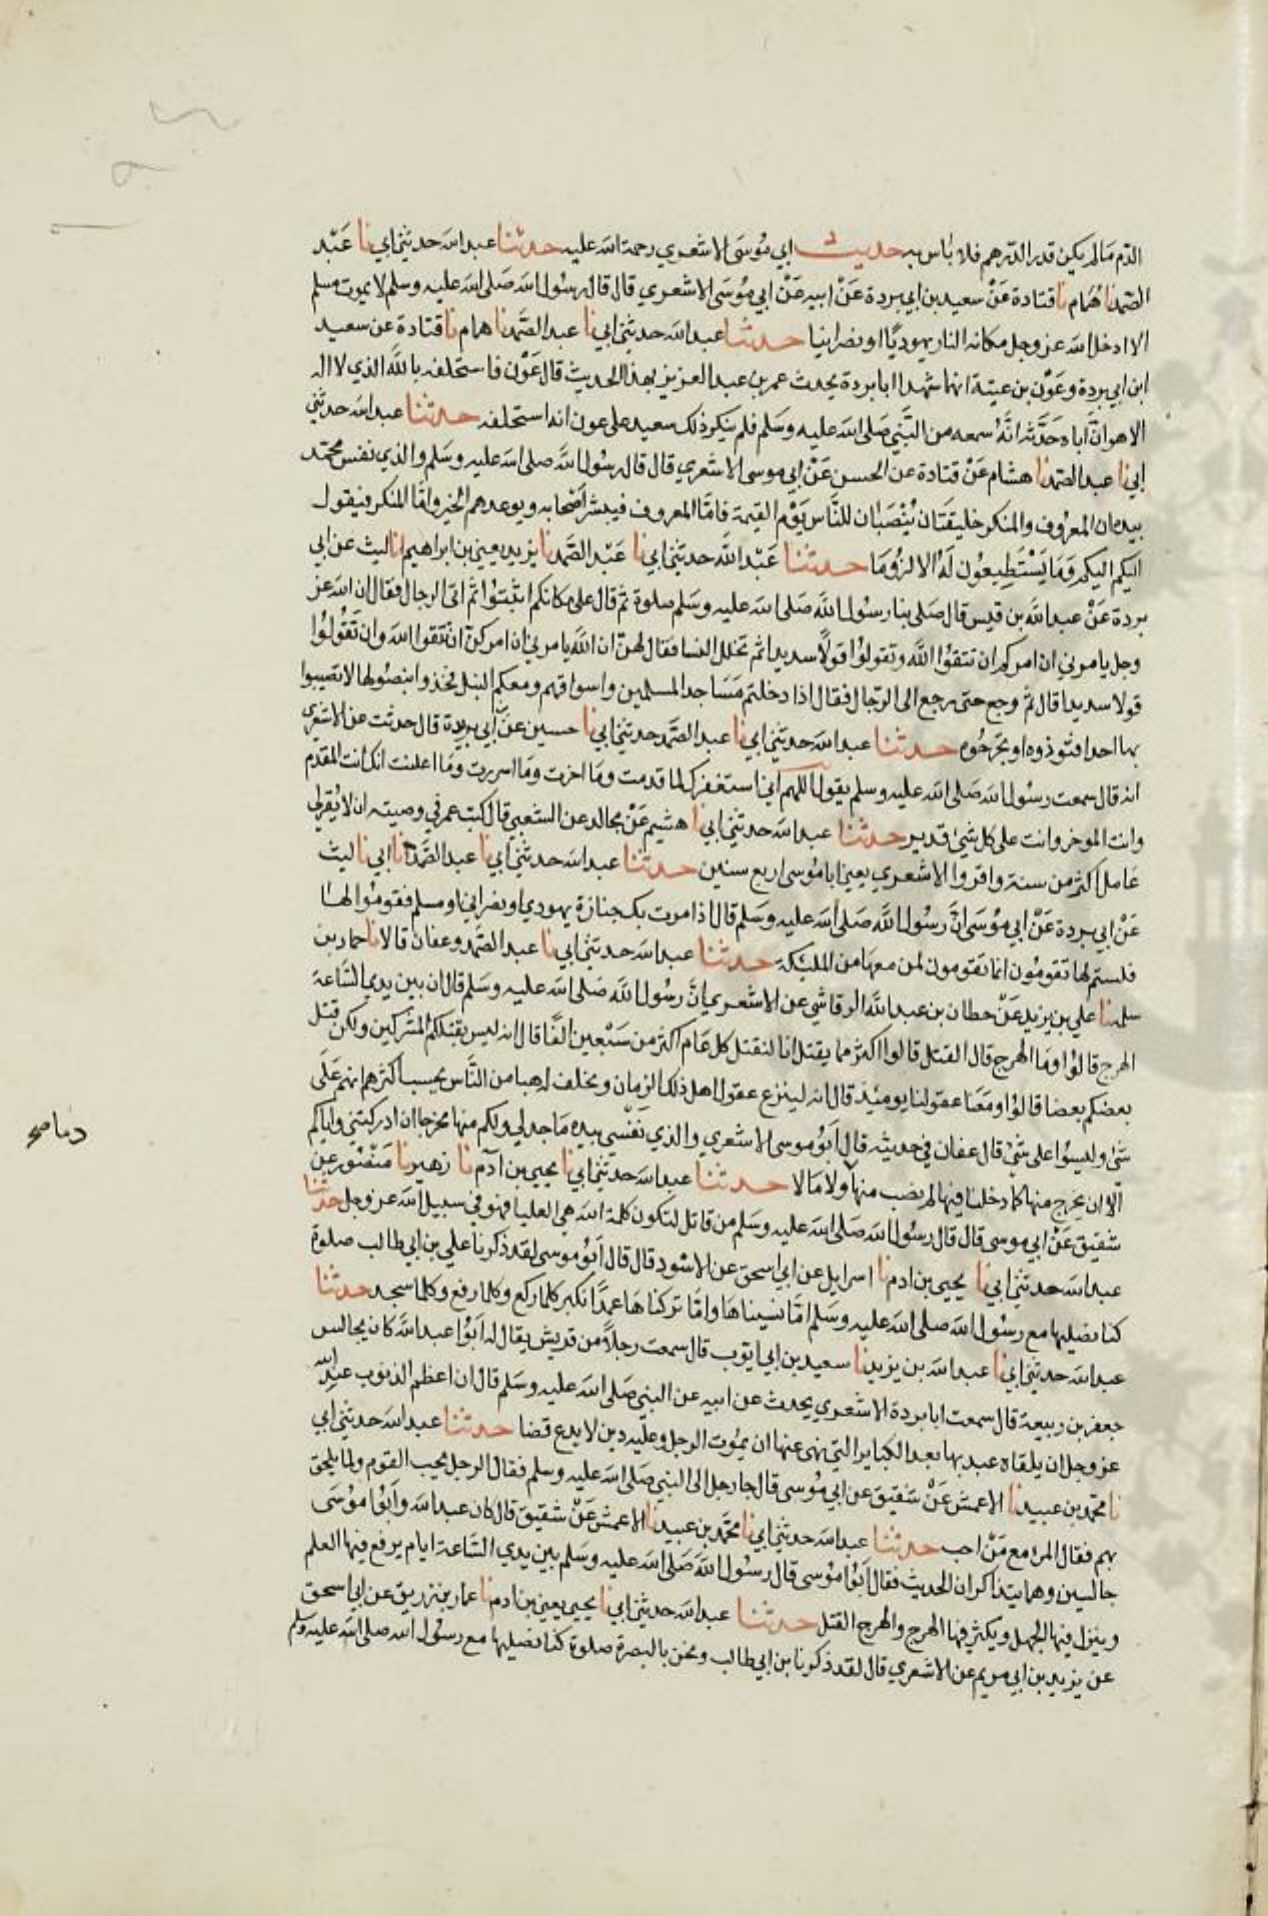 الدم مالم يكن قدر الدرهم فلا بأس به حديث ابي موسى الاشعري رحمة الله عليه حدثنا عبد الله حدثني ابي نا عبد
الصمد نا همام نا قتادة عن سعيد بن ابي بردة عن ابيه عن ابي موسى الاشعري قال قال رسول الله صلى الله عليه وسلم لا يموت مسلم
الا ادخل الله عز وجل مكانه النار يهوديا او نصرانيا حدثنا عبد الله حدثني ابي نا عبد الصمد نا همام نا قتادة عن سعيد
ابن ابي بردة وعون بن عتبة انهما شهدا ابا بردة يحدث عمر بن عبد العزيز بهذا الحديث قال عون فاستحلفه بالله الذي لا اله
الا هو ان اباه حدثه انه سمعه من النبي صلى الله عليه وسلم فلم ينكر ذلك سعيد على عون انه استحلفه حدثنا عبد الله حدثني
ابي نا عبد الصمد نا هشام عن قتادة عن الحسن عن ابي موسى الاشعري قال قال رسول الله صلى الله عليه وسلم والذي نفس محمد
بيده ان المعروف والمنكر خليقتان ينصبان للناس يوم القيمة فاما المعروف فيبشر أصحابه ويوعدهم الخير واما المنكر فيقول
اليكم اليكم وما يستطيعون له الا لزوما حدثنا عبد الله حدثني ابي نا عبد الصمد نا يزيد يعني بن ابراهيم انا ليث عن ابي
بردة عن عبد الله بن قيس قال صلى بنا رسول الله صلى الله عليه وسلم صلوة ثم قال على مكانكم اثبتوا ثم اتى الرجال فقال ان الله عز
وجل يامرني ان امركم ان تتقوا الله وتقولوا قولا سديدا ثم تخلل النسا فقال لهن ان الله يامرني ان امركن ان تتقوا الله وان تقولوا
قولا سديدا قال ثم رجع حتى رجع الى الرجال فقال اذا دخلتم مساجد المسلمين واسواقهم ومعكم النبل فخذوا بنصولها لا تصيبوا
بها احدا فتوذوه او تجرحوه حدثنا عبد الله حدثني ابي نا عبد الصمد حدثني ابي نا حسين عن أبي بريدة قال حدثت عن الاشعري
انه قال سمعت رسول الله صلى الله عليه وسلم يقول اللهم اني استغفرك لما قدمت وما اخرت وما اسررت وما اعلنت انك انت المقدم
وانت الموخر وانت على كل شيء قدير حدثنا عبد الله حدثني ابي نا هشيم عن مجالد عن الشعبي قال كتب عمر في وصيته ان لا يقر لي
عامل اكثر من سنة واقروا الاشعري يعني ابا موسى اربع سنين حدثنا عبد الله حدثني ابي نا عبد الصمد نا ابي نا ليث
عن ابي بردة عن ابي موسى ان رسول الله صلى الله عليه وسلم قال اذا مرت بكم جنازة يهودي او نصراني او مسلم فقوموا لها
فلستم لها تقومون انما تقومون لمن معها من الملئكة حدثنا عبد الله حدثني ابي نا عبد الصمد وعفان قالا نا حماد بن
سلمة نا علي بن يزيد عن حطان بن عبد الله الرقاشي عن الاشعري ان رسول الله صلى الله عليه وسلم قال ان بين يدي الساعة
الهرج قالوا وما الهرج قال القتل قالوا اكثر مما يقتل انا لنقتل كل عام اكثر من سبعين الفا قال انه ليس بقتلكم المشركين ولكن قتل
بعضكم بعضا قالوا ومعنا عقولنا يومئذ قال انه لينزع عقول اهل ذلك الزمان ويخلف له هبا من الناس يحسب أكثرهم انهم على
شئ وليسوا على شئ قال عفان في حديثه قال أبو موسى الاشعري والذي نفسي بيده ما اجد لي ولكم منها مخرجا ان ادركتني واياكم
الا ان نخرج منها كما دخلنا فيها لم نصب منها ولا مالا حدثنا عبد الله حدثني ابي نا يحيى بن آدم نا زهير نا منصور عن
شقيق عن ابي موسى قال قال رسول الله صلى الله عليه وسلم من قاتل لتكون كلمة الله هي العليا فهو في سبيل الله عز وجل حدثنا
عبد الله حدثني ابي نا يحيى بن ادم نا اسرايل عن ابي اسحق عن الاسود قال قال أبو موسى لقد ذكرنا علي بن ابي طالب صلوة
كنا نصليها مع رسول الله صلى الله عليه وسلم اما نسيناها واما تركناها عمدا نكبر كلما ركع وكلما رفع وكلما سجد حدثنا
عبد الله حدثني ابي نا عبد الله بن يزيد نا سعيد بن ابي ايوب قال سمعت رجلا من قريش يقال له أبوا عبد الله كان يجالس
جعفر بن ربيعة قال سمعت ابا بردة الاشعري يحدث عن ابيه عن النبي صلى الله عليه وسلم قال ان اعظم الذنوب عند الله
عز وجل ان يلقاه عبد بها بعد الكباير التي نهى عنها ان يموت الرجل وعليه دين لا يدع قضا حدثنا عبد الله حدثني ابي
نا محمد بن عبيد نا الاعمش عن شقيق عن ابي موسى قال جا رجل الى النبي صلى الله عليه وسلم فقال الرجل يحب القوم ولما يلحق
بهم فقال المرا مع من احب حدثنا عبد الله حدثني ابي نا محمد بن عبيد نا الاعمش عن شقيق قال كان عبد الله وأبوا موسى
جالسين وهما يتذاكران الحديث فقال أبوا موسى قال رسول الله صلى الله عليه وسلم بين يدي الساعة ايام يرفع فيها العلم
وينزل فيها الجهل ويكثر فيها الهرج والهرج القتل حدثنا عبد الله حدثني ابي نا يحيى يعني بن ادم نا عمار بن زريق عن ابي اسحق
عن يزيد بن ابي مريم عن الاشعري قال لقد ذكرنا بن ابي طالب ونحن بالبصرة صلوة كنا نصليها مع رسول الله صلى الله عليه وسلم